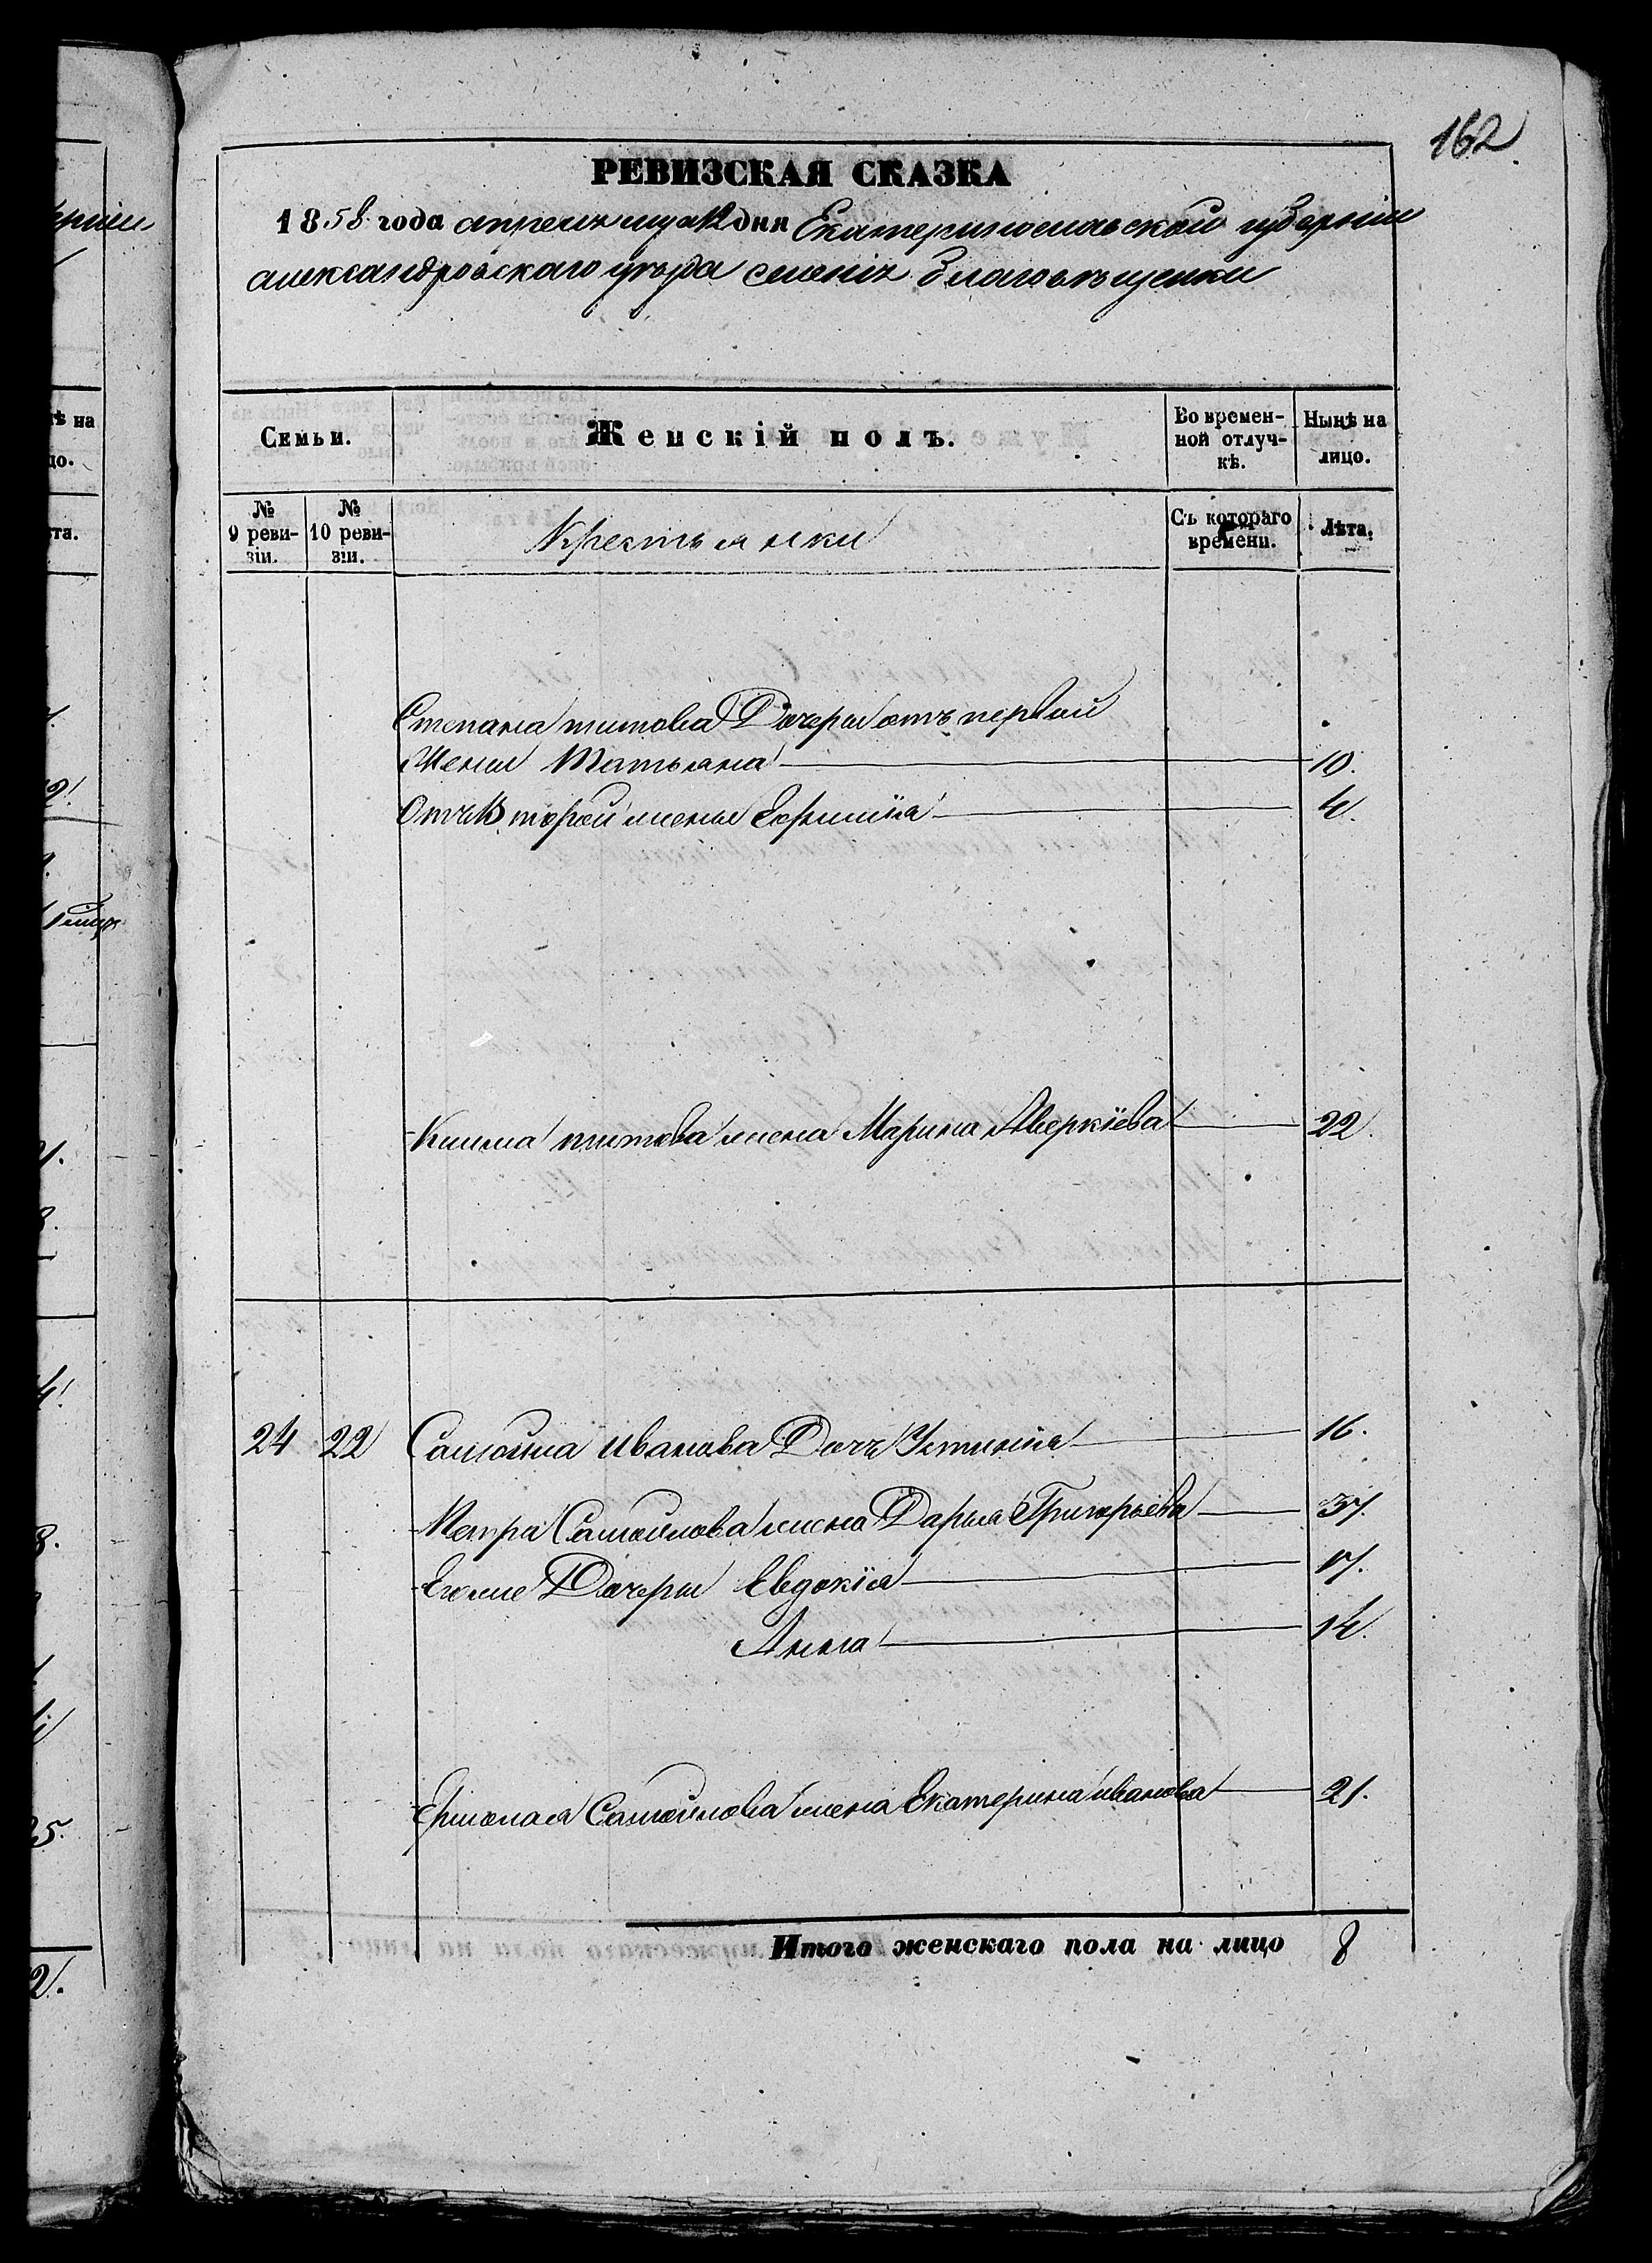 162
РЕВИЗСКАЯ СКАЗКА
1858 года апреля мца 12 дня Екатеринославской губернии
александровскаго уезда селенія благовещенки
Семьи.
Женскій полъ.
Во времен-
ной отлуч-
кѣ.
Нынѣ на
лицо.
№
9 реви-
зіи.
№
10 реви-
зіи.
Крестьянки
Съ котораго
времени.
Лѣта.
Степана титова Дочери отъ первой
Жены Татьяна 10.
Отъ Второй жены 4.
титова жена Марина Аверкіева 22.
24 22 Самойла иванова Дочь Устинія 16.
Петра Самойлова жена Дарья Григорьева 37.
Егоже Дочери Евдокія 17.
Анна 14.
Ермолая Самойлова жена Екатерина иванова 21.
Итого женскаго пола на лицо 8